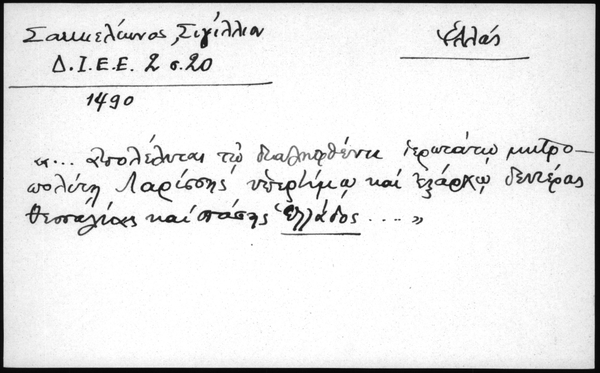 Σακκελίωνος, Σιγίλλιον
Ἑλλάς
Δ.Ι.Ε.Ε. 2 σ.20
1490
«... ἀπολέλυται τῷ διαληφθέντι ἱερωτάτῳ μητρο-
πολίτῃ Λαρίσσης ὑπερτίμῳ καὶ ἐξάρχῳ δευτέρας
Θεσσαλίας καὶ πάσης Ἑλλάδος ....»